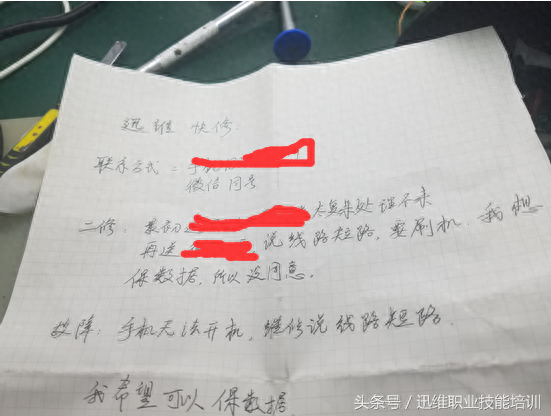 迅维快修
联系方式：手机
微信同号
二修．最初送 太复杂处理不来
再送 说线路短路，要刷机．我想
保数据，所以没同意。
故障：手机无法开机，维修说线路短路．
我希望可以保数据
头条号／迅维职业技能培训